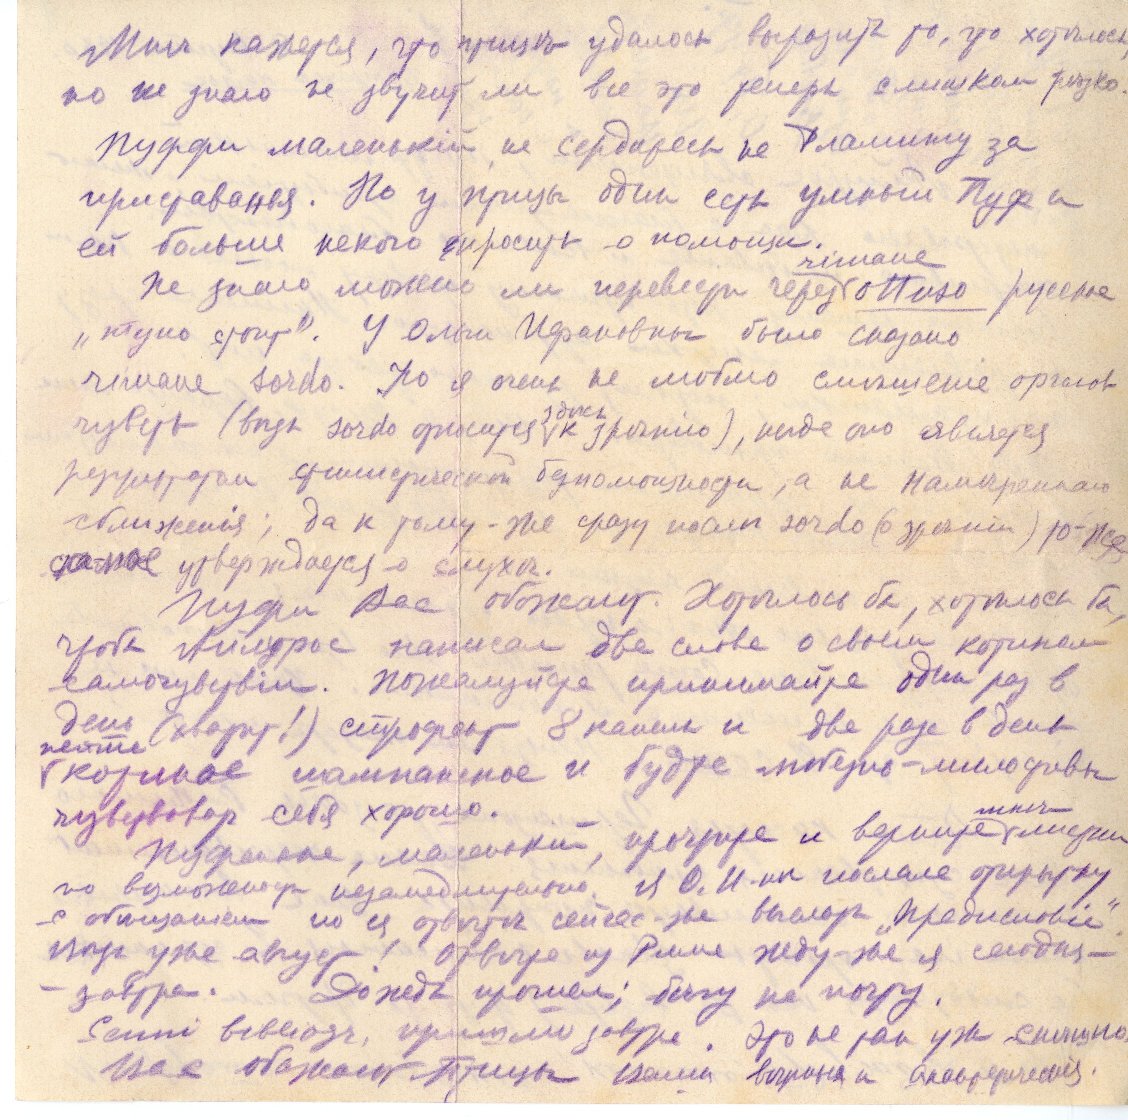 Мнѣ кажется, что птицѣ удалось выразить то, что хотѣлось,
но не знаю не звучит ли все это теперь слишком рѣзко.
Пуффи маленькій, не сердитесь на Фламингу за
приставанья. Но у птицы один есть умный Пуф и
ей больше некого просить о помощи.
rimane
Не знаю можно ли перевести через ottuso русское
„тупо стоит". У Ольги Ивановны было сказано
rimane sordo. Но я очень не люблю смѣшеніе органов
чувств (вѣдь sordo относится здѣсь к зрѣнію), когда оно является
результатом стилистической безпомощности, а не намѣреннаго
сближенія; да к тому-же сразу послѣ sordo (о зрѣніи) то-же
самое утверждается о слухѣ.
Пуфи Вас обожают. Хотѣлось бы, хотѣлось бы,
чтобы написал два слова о своем котином
самочувствіи. Пожалуйста принимайте один раз в
день (хватит!) строфант 8 капель и два раза в день
пейте котиное шампанское и будте любезно-милостивы
чувствовать себя хорошо.
Пуфинька, маленькій, прочтите и верните мнѣ листки
по возможности незамедлительно. Я О. И-нѣ послала открытку
с обѣщаніем по ея отвѣтѣ сейчас-же выслать „Предисловіе".
Вѣдь уже август! Отвѣта из Рима жду-же я сегодня-
-завтра. Дождь прошел; бѣгу на почту.
пришлю завтра. Это не так уж спѣшно.
Вас обожают Птицы